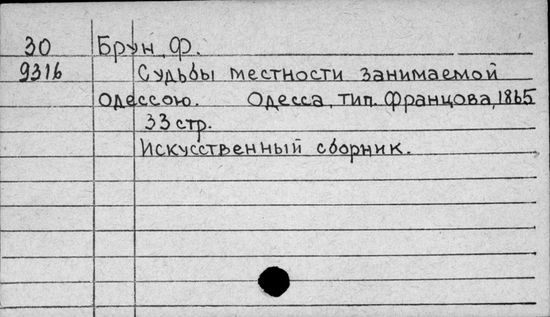 30 Брун, Ф.
9316 Судьбы местности занимаемой
Одессою. Одесса, тип. Французова, 1865
33 стр.
Искусственный сборник.